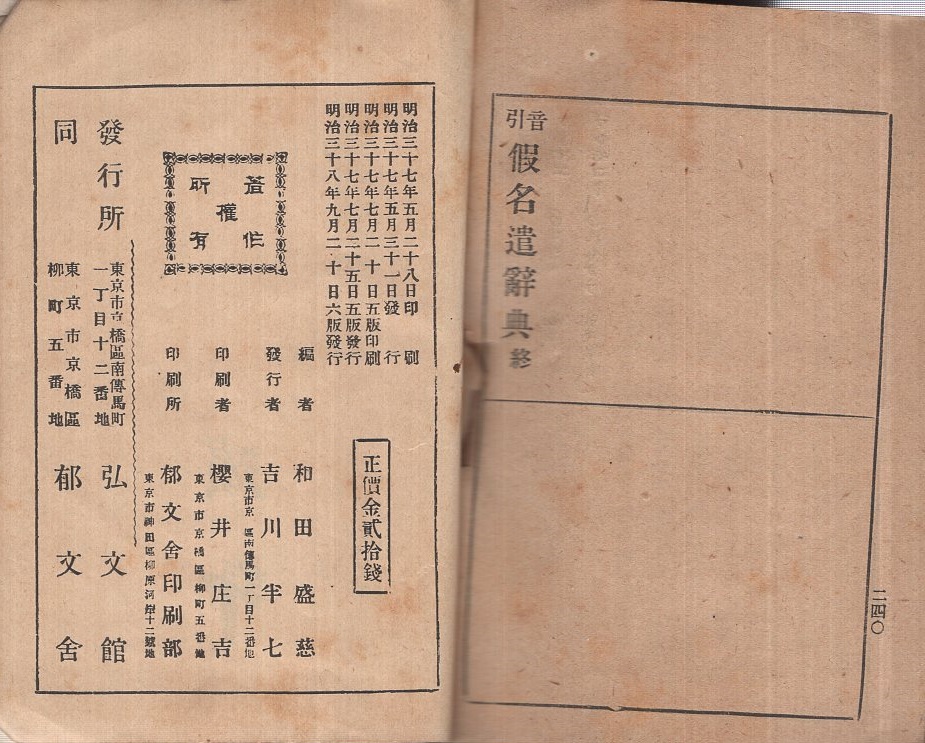 音引
假名遣辭典終
二四〇
明治三十七年五月二十八日印刷
明治三十七年五月三十一日發行
明治三十七年七月二十日五版印刷
明治三十七年七月二十五日五版發行
明治三十八年九月二十日六版發行
著作
權
所有
正價金貳拾錢
編者 和田盛慈
發行者 吉川半七
東京市京 區南傳馬町一丁目十二番地
印刷者 櫻井庄吉
東京市京橋區柳町五番地
印刷所 郁文舍印刷部
東京市神田區柳原河岸十二號地
發行所 弘文館
東京市京橋區南傳馬町
一丁目十二番地
同 郁文舍
東京市京橋區
柳町五番地